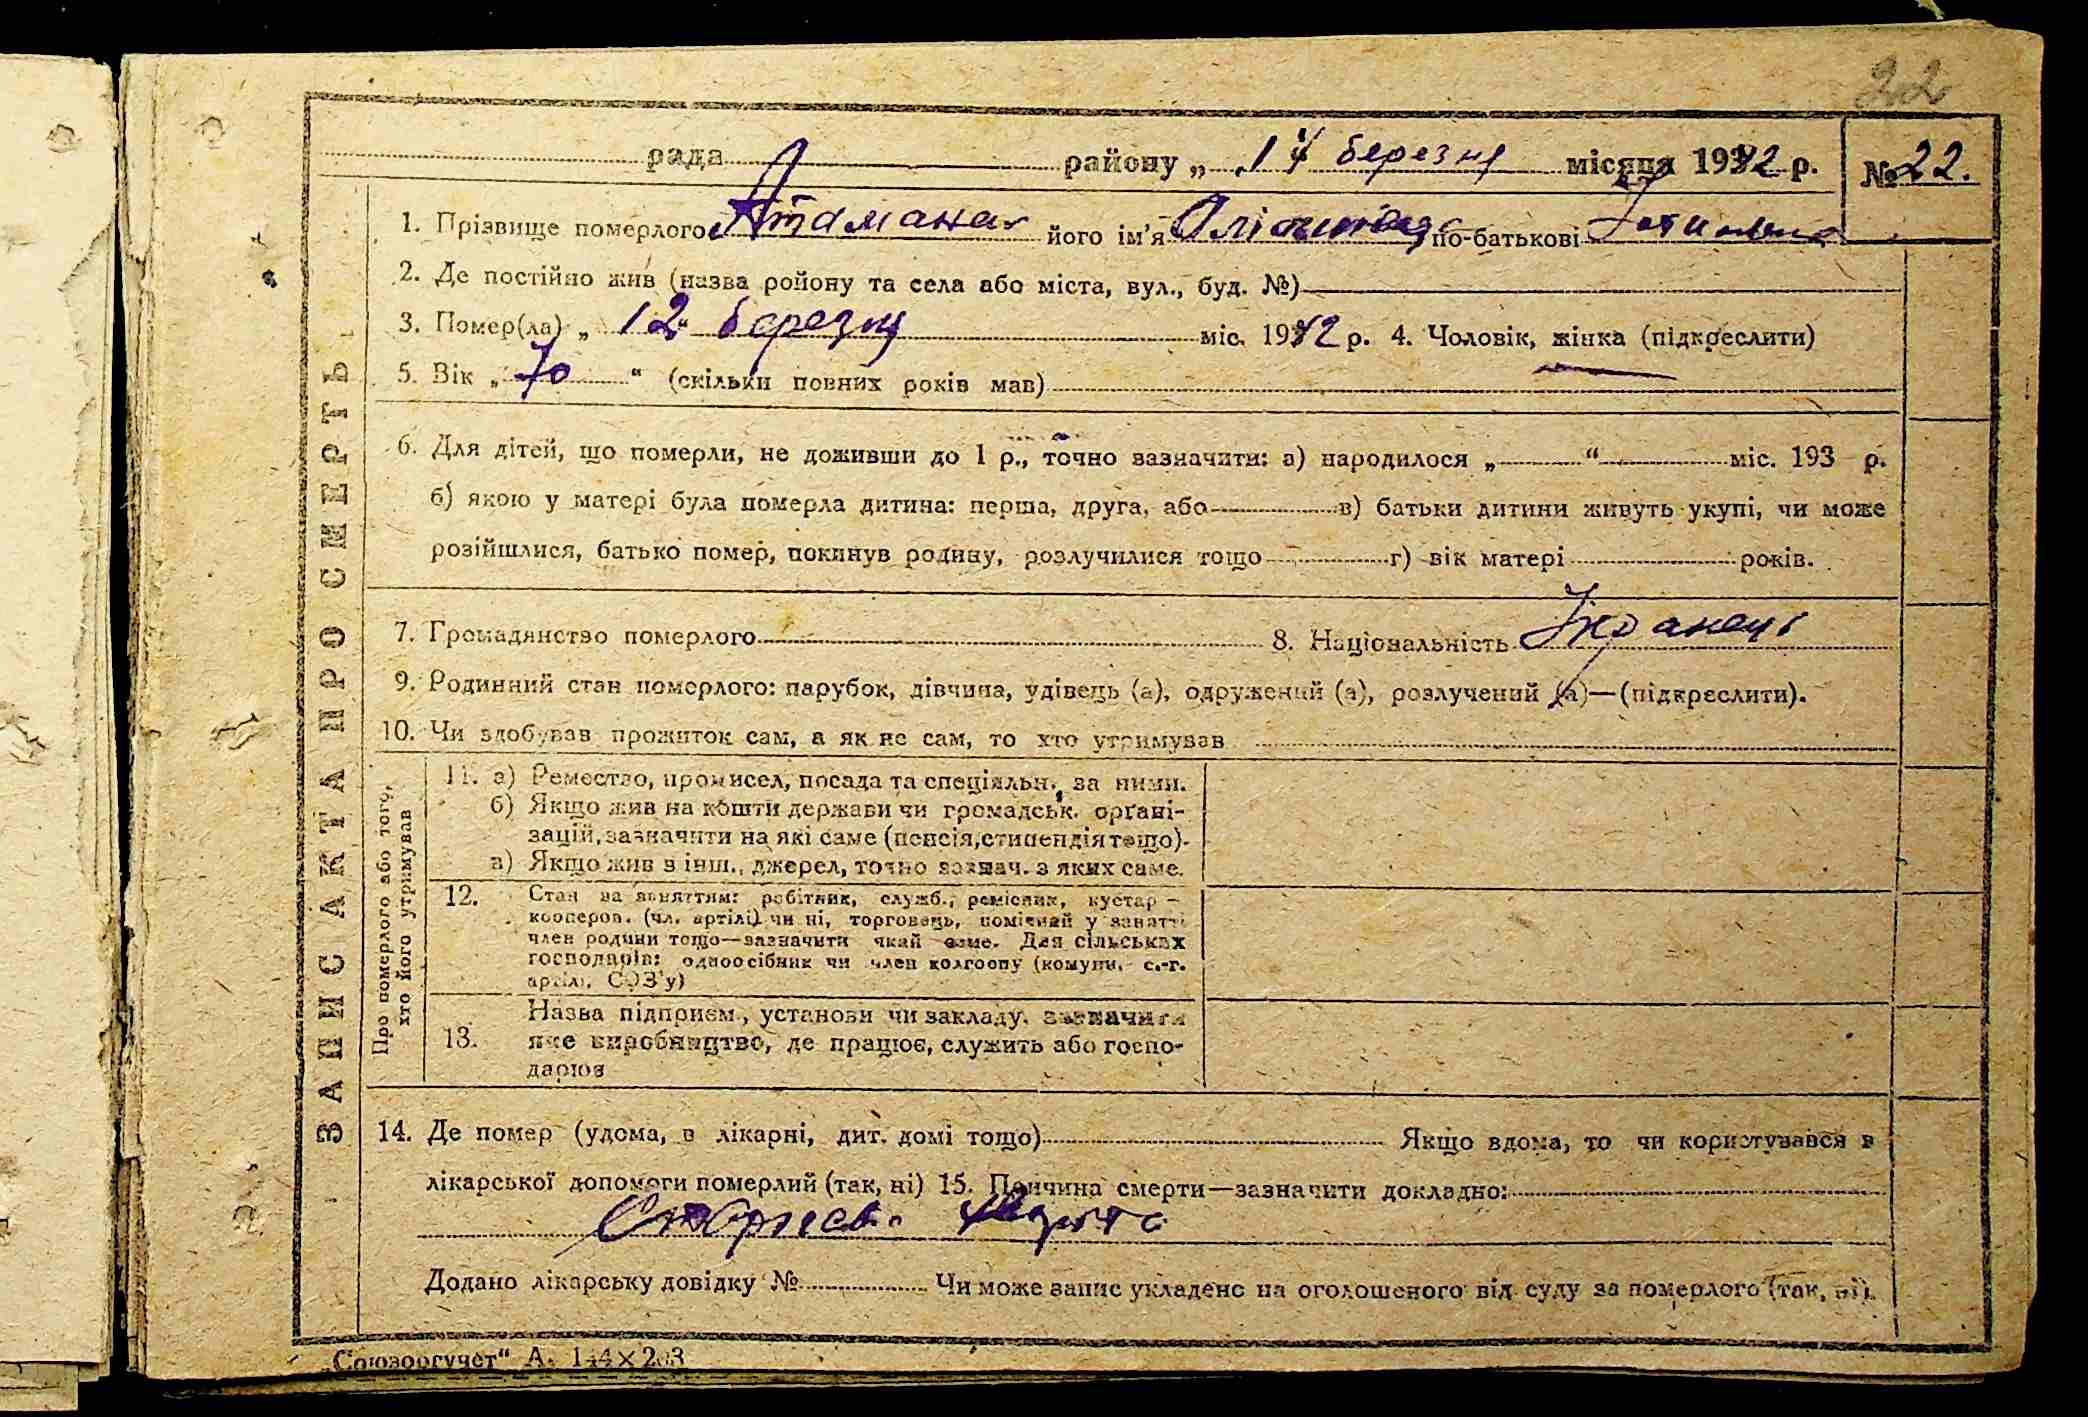 22
рада районну „ 14 березня місяця 1942 р. № 22.
1. Прізвище померлого Атамана його ім'я по-батькові
2. Де постійно жив (назва ройону та села або міста, вул., буд. №)
3. Помер(ла) „ 12 " березня міс. 1942 р. 4. Чоловік, жінка (підкреслити)
5. Вік „ 70 " (скільки повних років мав)
6. Для дітей, що померли, не доживши до 1 р., точно зазначити: а) народилося „ " міс. 193 р.
б) якою у матері була померла дитина: перша, друга, або в) батьки дитини живуть укупі, чи може
розійшлися, батько помер, покинув родину, розлучилися тощо г) вік матері років.
7. Громадянство померлого 8. Національність
9. Родинний стан померлого: парубок, дівчина, удівець (а), одружений (а), розлучений (а)—(підкреслити).
10. Чи здобував прожиток сам, а як не сам, то хто утримував
ЗАПИС АКТА ПРО СМЕРТЬ
Про померлого або того,
хто його утримував
11. а) Ремество, промисел, посада та спеціяльн. за ними.
б) Якщо жив на кошти держави чи громадськ. орґані-
зацій, зазначити на які саме (пенсія, стипендія тощо).
в) Якщо жив з інш. джерел, точно зазнач. з яких саме.
12. Стан за заняттям: робітник, служб., ремісник, кустар –
кооперов. (чл. артілі) чи ні, торговець, помічний у занятті
член родини тощо—зазначити який саме. Для сільських
господарів: одноосібник чи член колгоспу (комуни, с.-г.
артілі, СОЗ'у)
13. Назва підприєм., установи чи закладу, зазначити
яке виробництво, де працює, служить або госпо-
дарює
14. Де помер (удома, в лікарні, дит. домі тощо) Якщо вдома, то чи користувався в
лікарської допомоги померлий (так, ні) 15. Причина смерти—зазначити докладно:
Додано лікарську довідку № Чи може запис укладено на оголошеного від суду за померлого (так, ні).
„Союзоргучет" А. 144×203